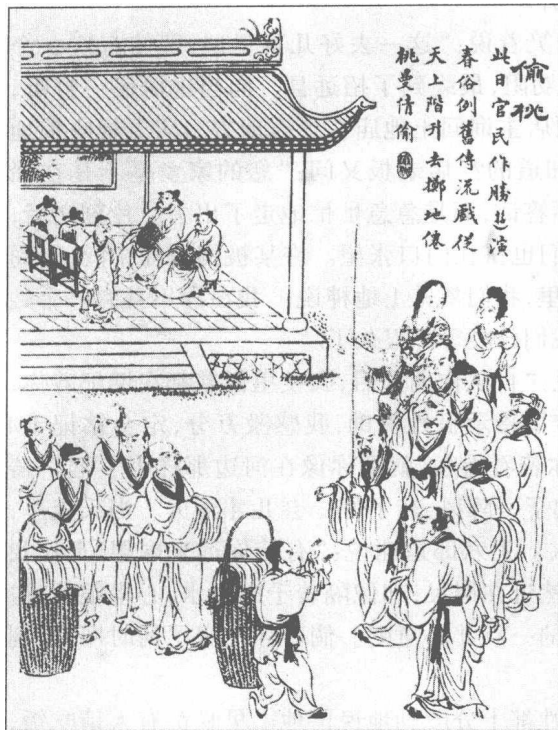 偷桃
此日官民作勝遊演
春俗例舊傳流戲從
天階昇去擲地僊
桃倩偷